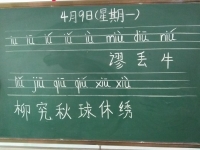 4月9日(星期一)
iū iú iǔ iù miù diū niú
谬 丢 牛
liǔ jiū qiū qiú xiū xiù
柳 究 秋 球 休 绣